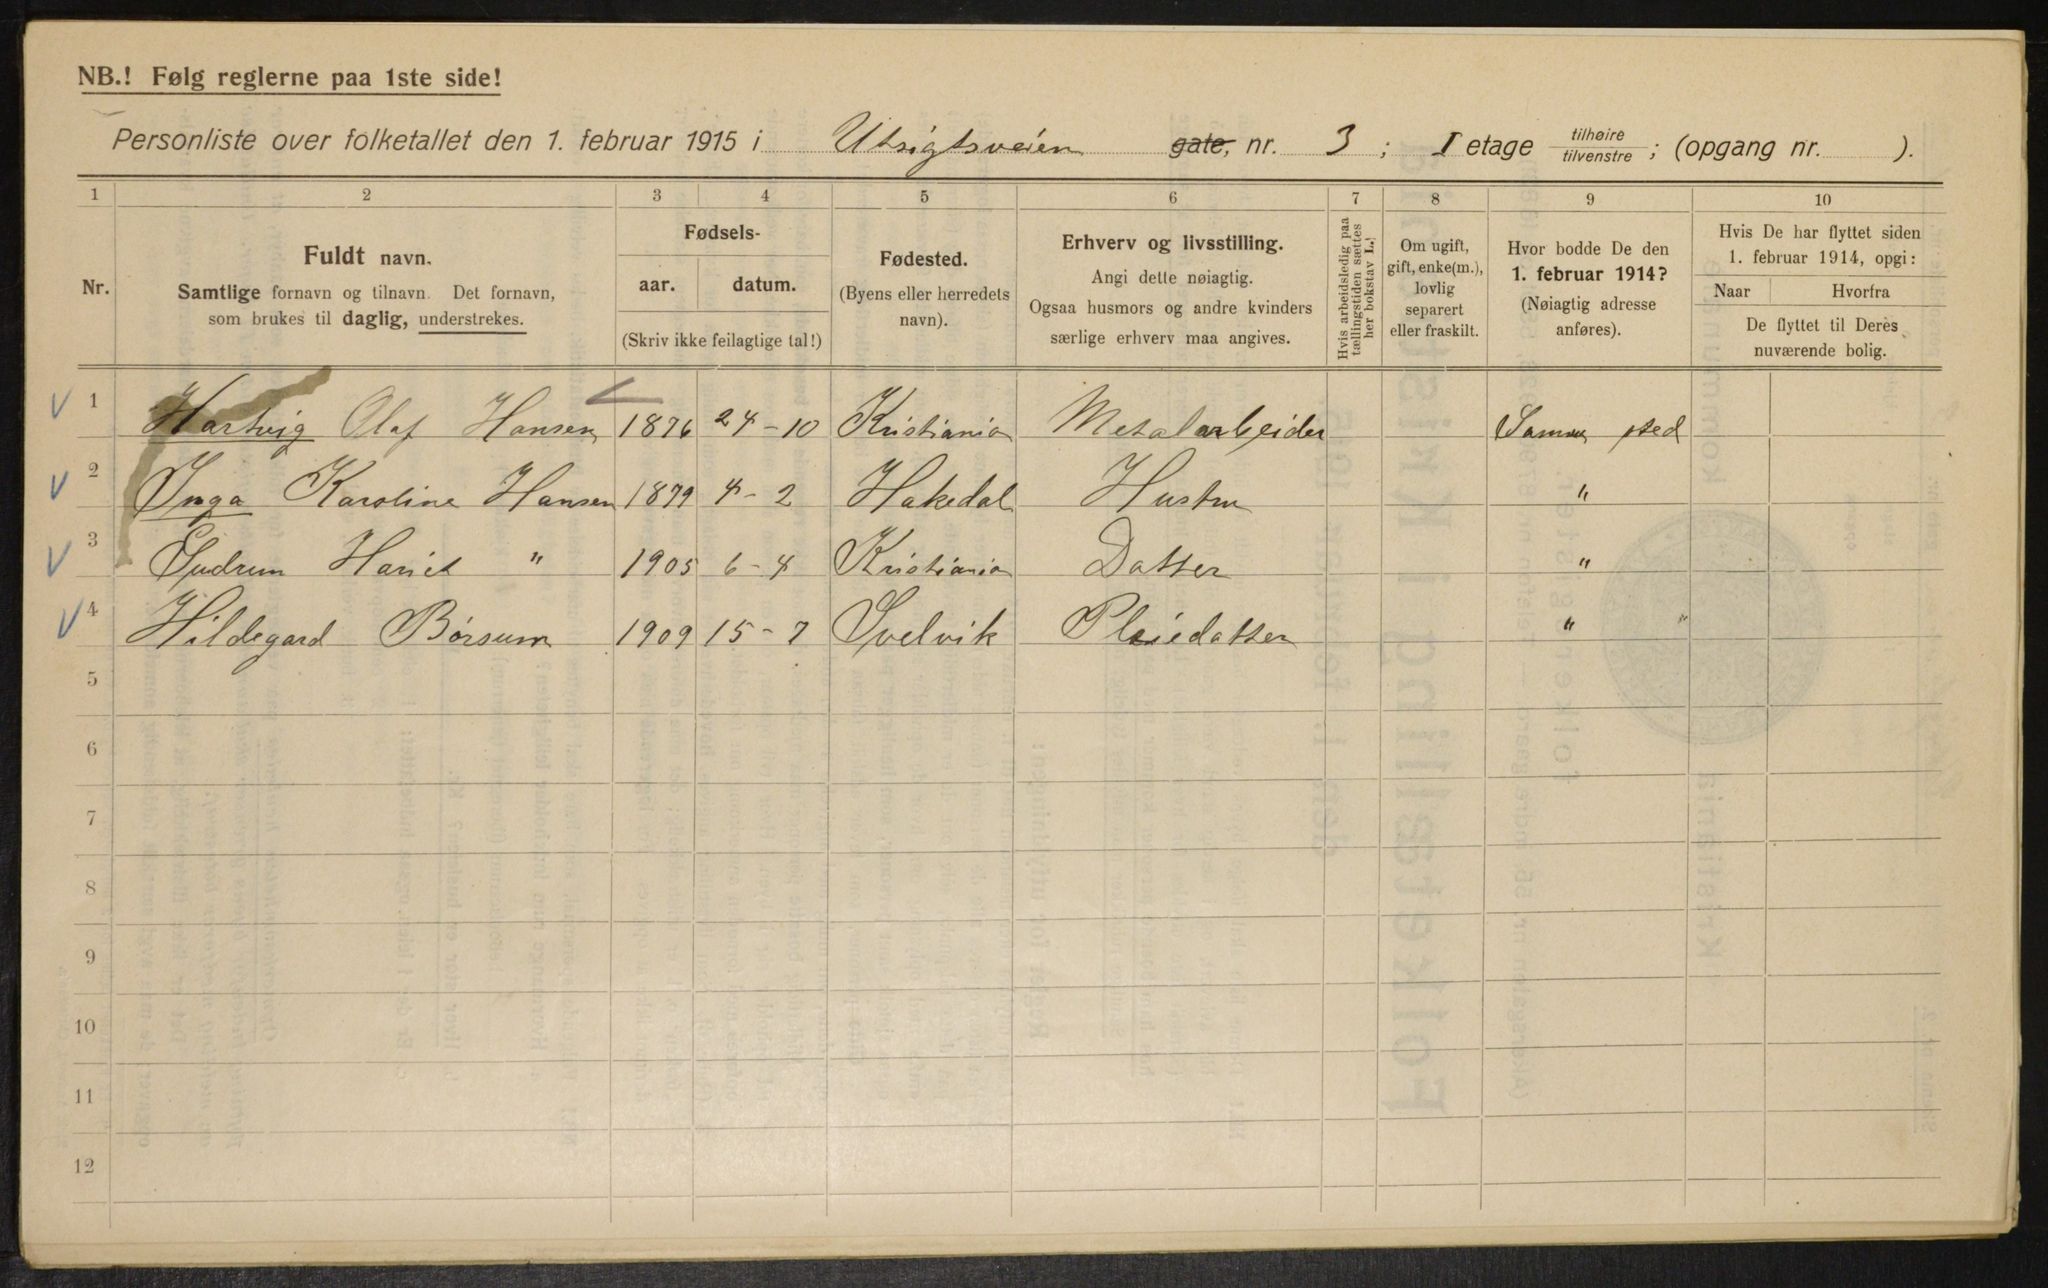 NB.! Følg reglerne paa 1ste side!
Personliste over folketallet den 1. februar 1915 i Utsigtsveien gate, nr. 3 ; I etage tilhøire/tilvenstre ; (opgang nr. ).
1 2 3 4 5 6 7 8 9 10
Nr.
Fuldt navn.
Samtlige fornavn og tilnavn. Det fornavn,
som brukes til daglig, understrekes.
Fødsels-
aar. datum.
(Skriv ikke feilagtige tal!)
Fødested.
(Byens eller herredets
navn).
Erhverv og livsstilling.
Angi dette nøiagtig.
Ogsaa husmors og andre kvinders
særlige erhverv maa angives.
Hvis arbeidsledig paa
tællingstiden sættes
her bokstav L.!
Om ugift,
gift, enke(m.),
lovlig
separert
eller fraskilt.
Hvor bodde De den
1. februar 1914?
(Nøiagtig adresse
anføres).
Hvis De har flyttet siden
1. februar 1914, opgi:
Naar Hvorfra
De flyttet til Deres
nuværende bolig.
1 Hartvig Olaf Hansen 1876 24-10 Kristiania Metalarbeider Samme sted
2 Inga Karoline Hansen 1879 4-2 Hakedal Hustru "
3 Gudrun Hariet " 1905 6-4 Kristiania Datter "
4 Hildegard Børsum 1909 15-7 Svelvik Pleiedatter " "
5
6
7
8
9
10
11
12